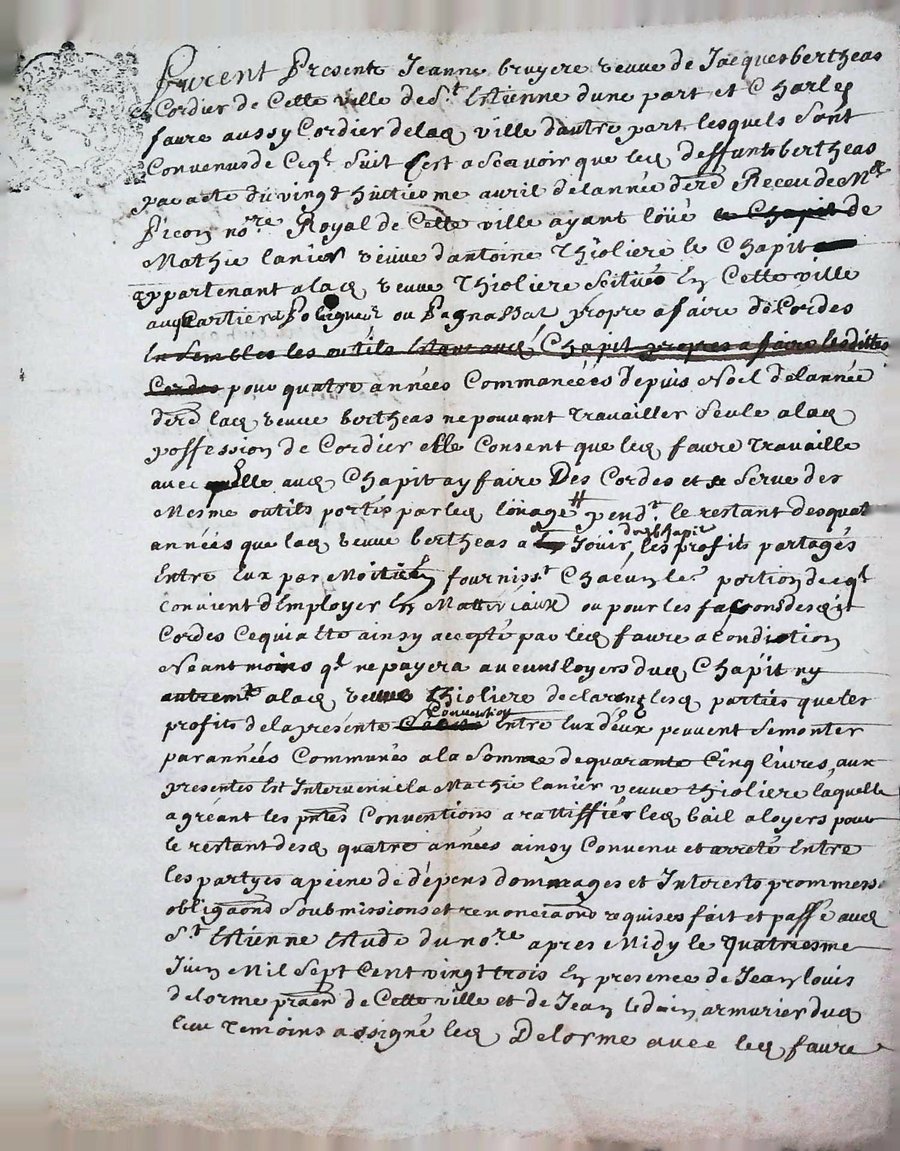 Furent Presents Jeanne bruyere veuve de Jacques bertheas
Cordier de Cette ville de St Estienne dune part et Charles
faure aussy Cordier de lad ville dautre part lesquels sont
Convenus de Ceqt suit Cest a scavoir que led deffunt bertheas
par acte du vingt huitiesme avril de lannée derē Receu de Me
Picon nore Royal de Cette ville ayant loüé le Chapit de
Mathie lanier veuve dantoine Thioliere le Chapit
appartenant a lad veuve Thioliere scitué En Cette ville
au quartier Polignieu ou Pagnassat propre a faire de Cordes
Ensembles les outils Estant aud Chapit propres a faire lesdittes
Cordes pour quatre années Commancées depuis Noel de lannée
derē lad veuve bertheas ne pouvant travailler seule a lad
poffession de Cordier elle Consent que led faure travaille
avec elle aud Chapit a y faire Des Cordes et se serve des
Mesme outils portés par led loüage pendt le restant desquat
années que lad veuve bertheas a Jouir dud chapit, les profits partagés
Entre Eux par Moitié En fournisst Chacun les portion de cqt
convient dEmployer En Matteriaux ou pour les façons desdit
Cordes Ce qui a ete ainsy accepté par led faure a Condiction
Neantmoins qt ne payera aucuns loyers dud Chapit ny
autremt a lad veuve Thioliere declarent lesd parties que les
profits de la presente Convention Entre Eux deux peuvent se monter
par années Communes a la somme de quarante Cinq livres, aux
presentes Est Intervenue la Mathie lanier veuve thioliere laquelle
agréant les pntes Conventions a rattiffié led bail a loyers pour
le restant desd quatre années ainsy Convenu et arreté Entre
les partyes a peine de depens dommages et Interests prommess
obligaōns soubmissions et renonciaōns requises fait et passé aud
St Estienne Estude du nore apres Midy le quatriesme
Juin Mil sept Cent vingt trois En presence de Jean louis
delorme praēn de Cette ville et de Jean ledoin armurier dud
lieu temoins a signé led Delorme avec led faure